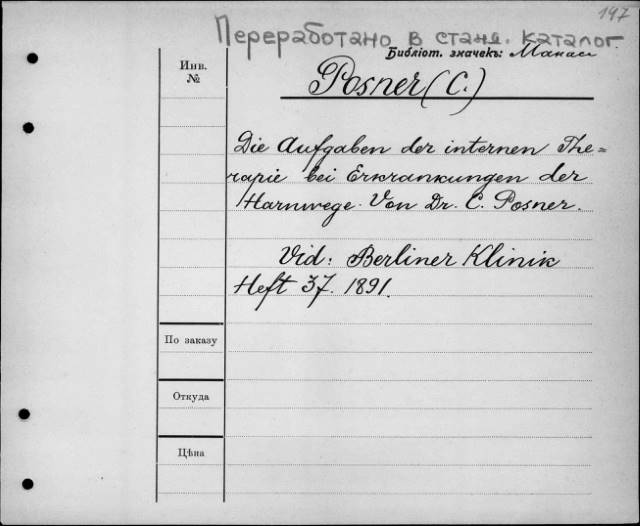 147
Переработано в станд. каталог
Библіот. значекъ:
Инв.
№
Posner (C.)
Die Aufgaben der internen The=
rapie bei Erkrankungen der
Harnwege. Von Dr. C. Posner.
Vid: Berliner Klinik
Heft 37. 1891.
По заказу
Откуда
Цѣна